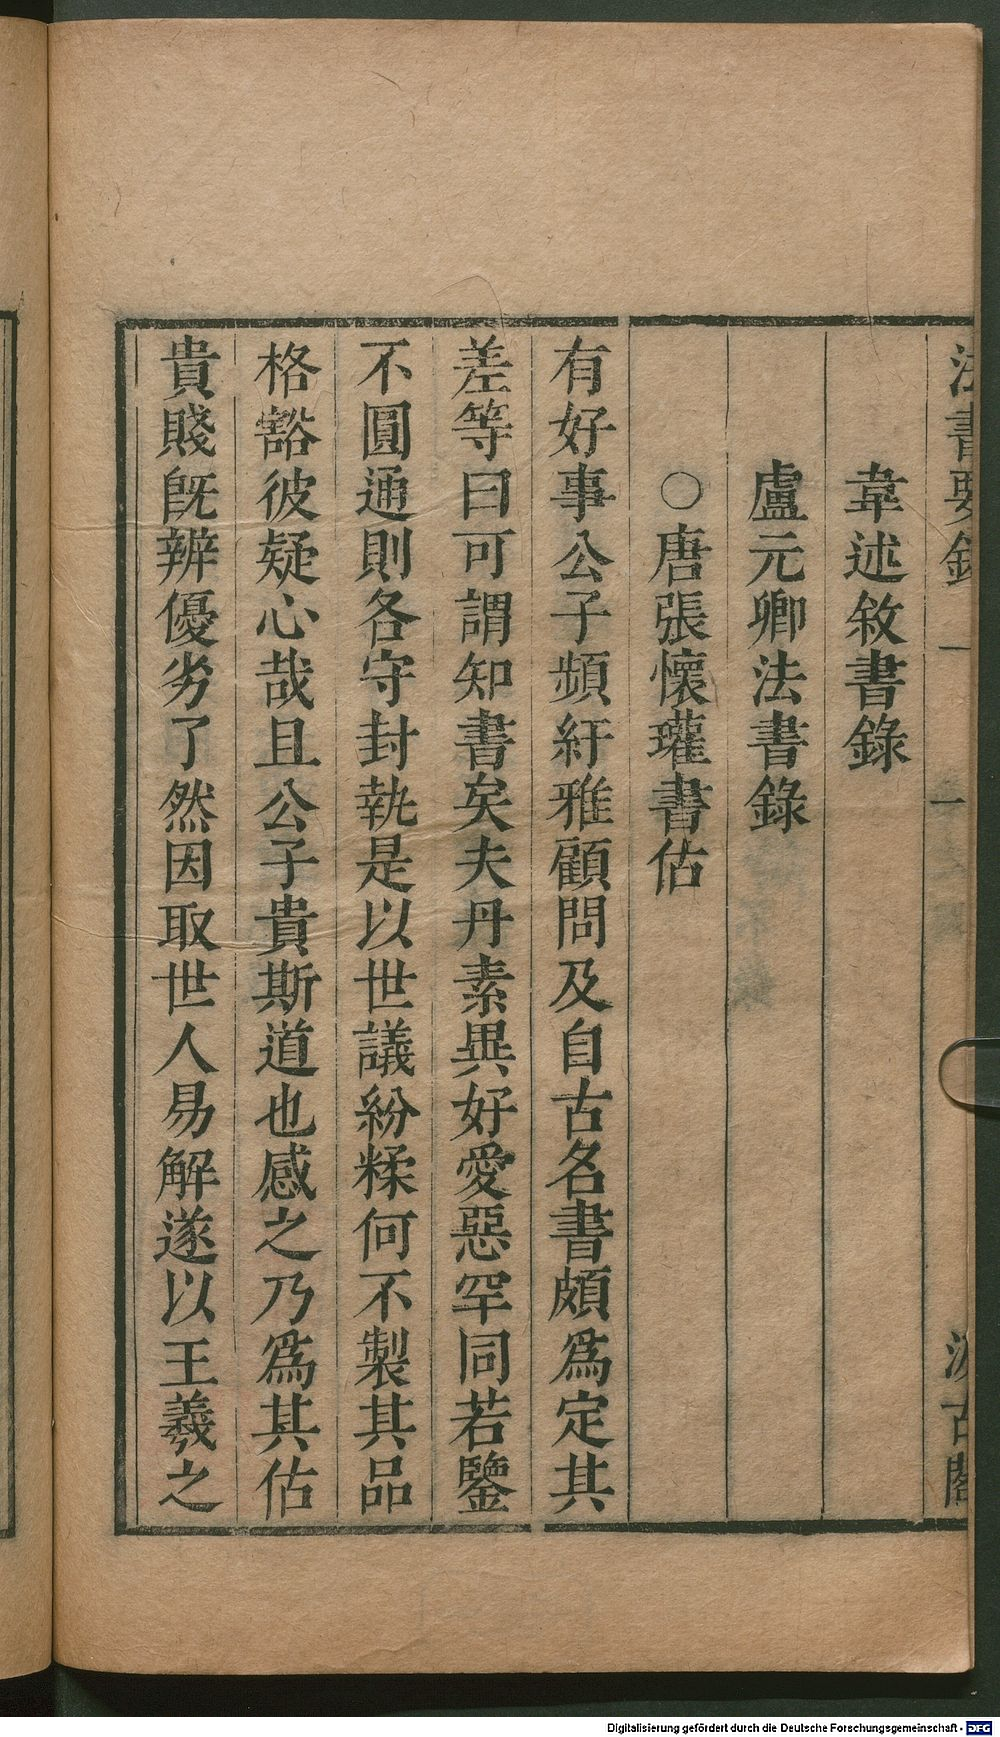 法書要錄 一 一 汲古閣
韋述敘書錄
盧元卿法書錄
○唐張懷瓘書估
有好事公子頻紆雅顧問及自古名書頗爲定其
差等曰可謂知書矣夫丹素異好愛惡罕同若鑒
不圓通則各守封執是以世議紛糅何不製其品
格豁彼疑心哉且公子貴斯道也感之乃爲其估
貴賤旣辨優劣了然因取世人易解遂以王羲之
Digitalisierung gefördert durch die Deutsche Forschungsgemeinschaft - DFG